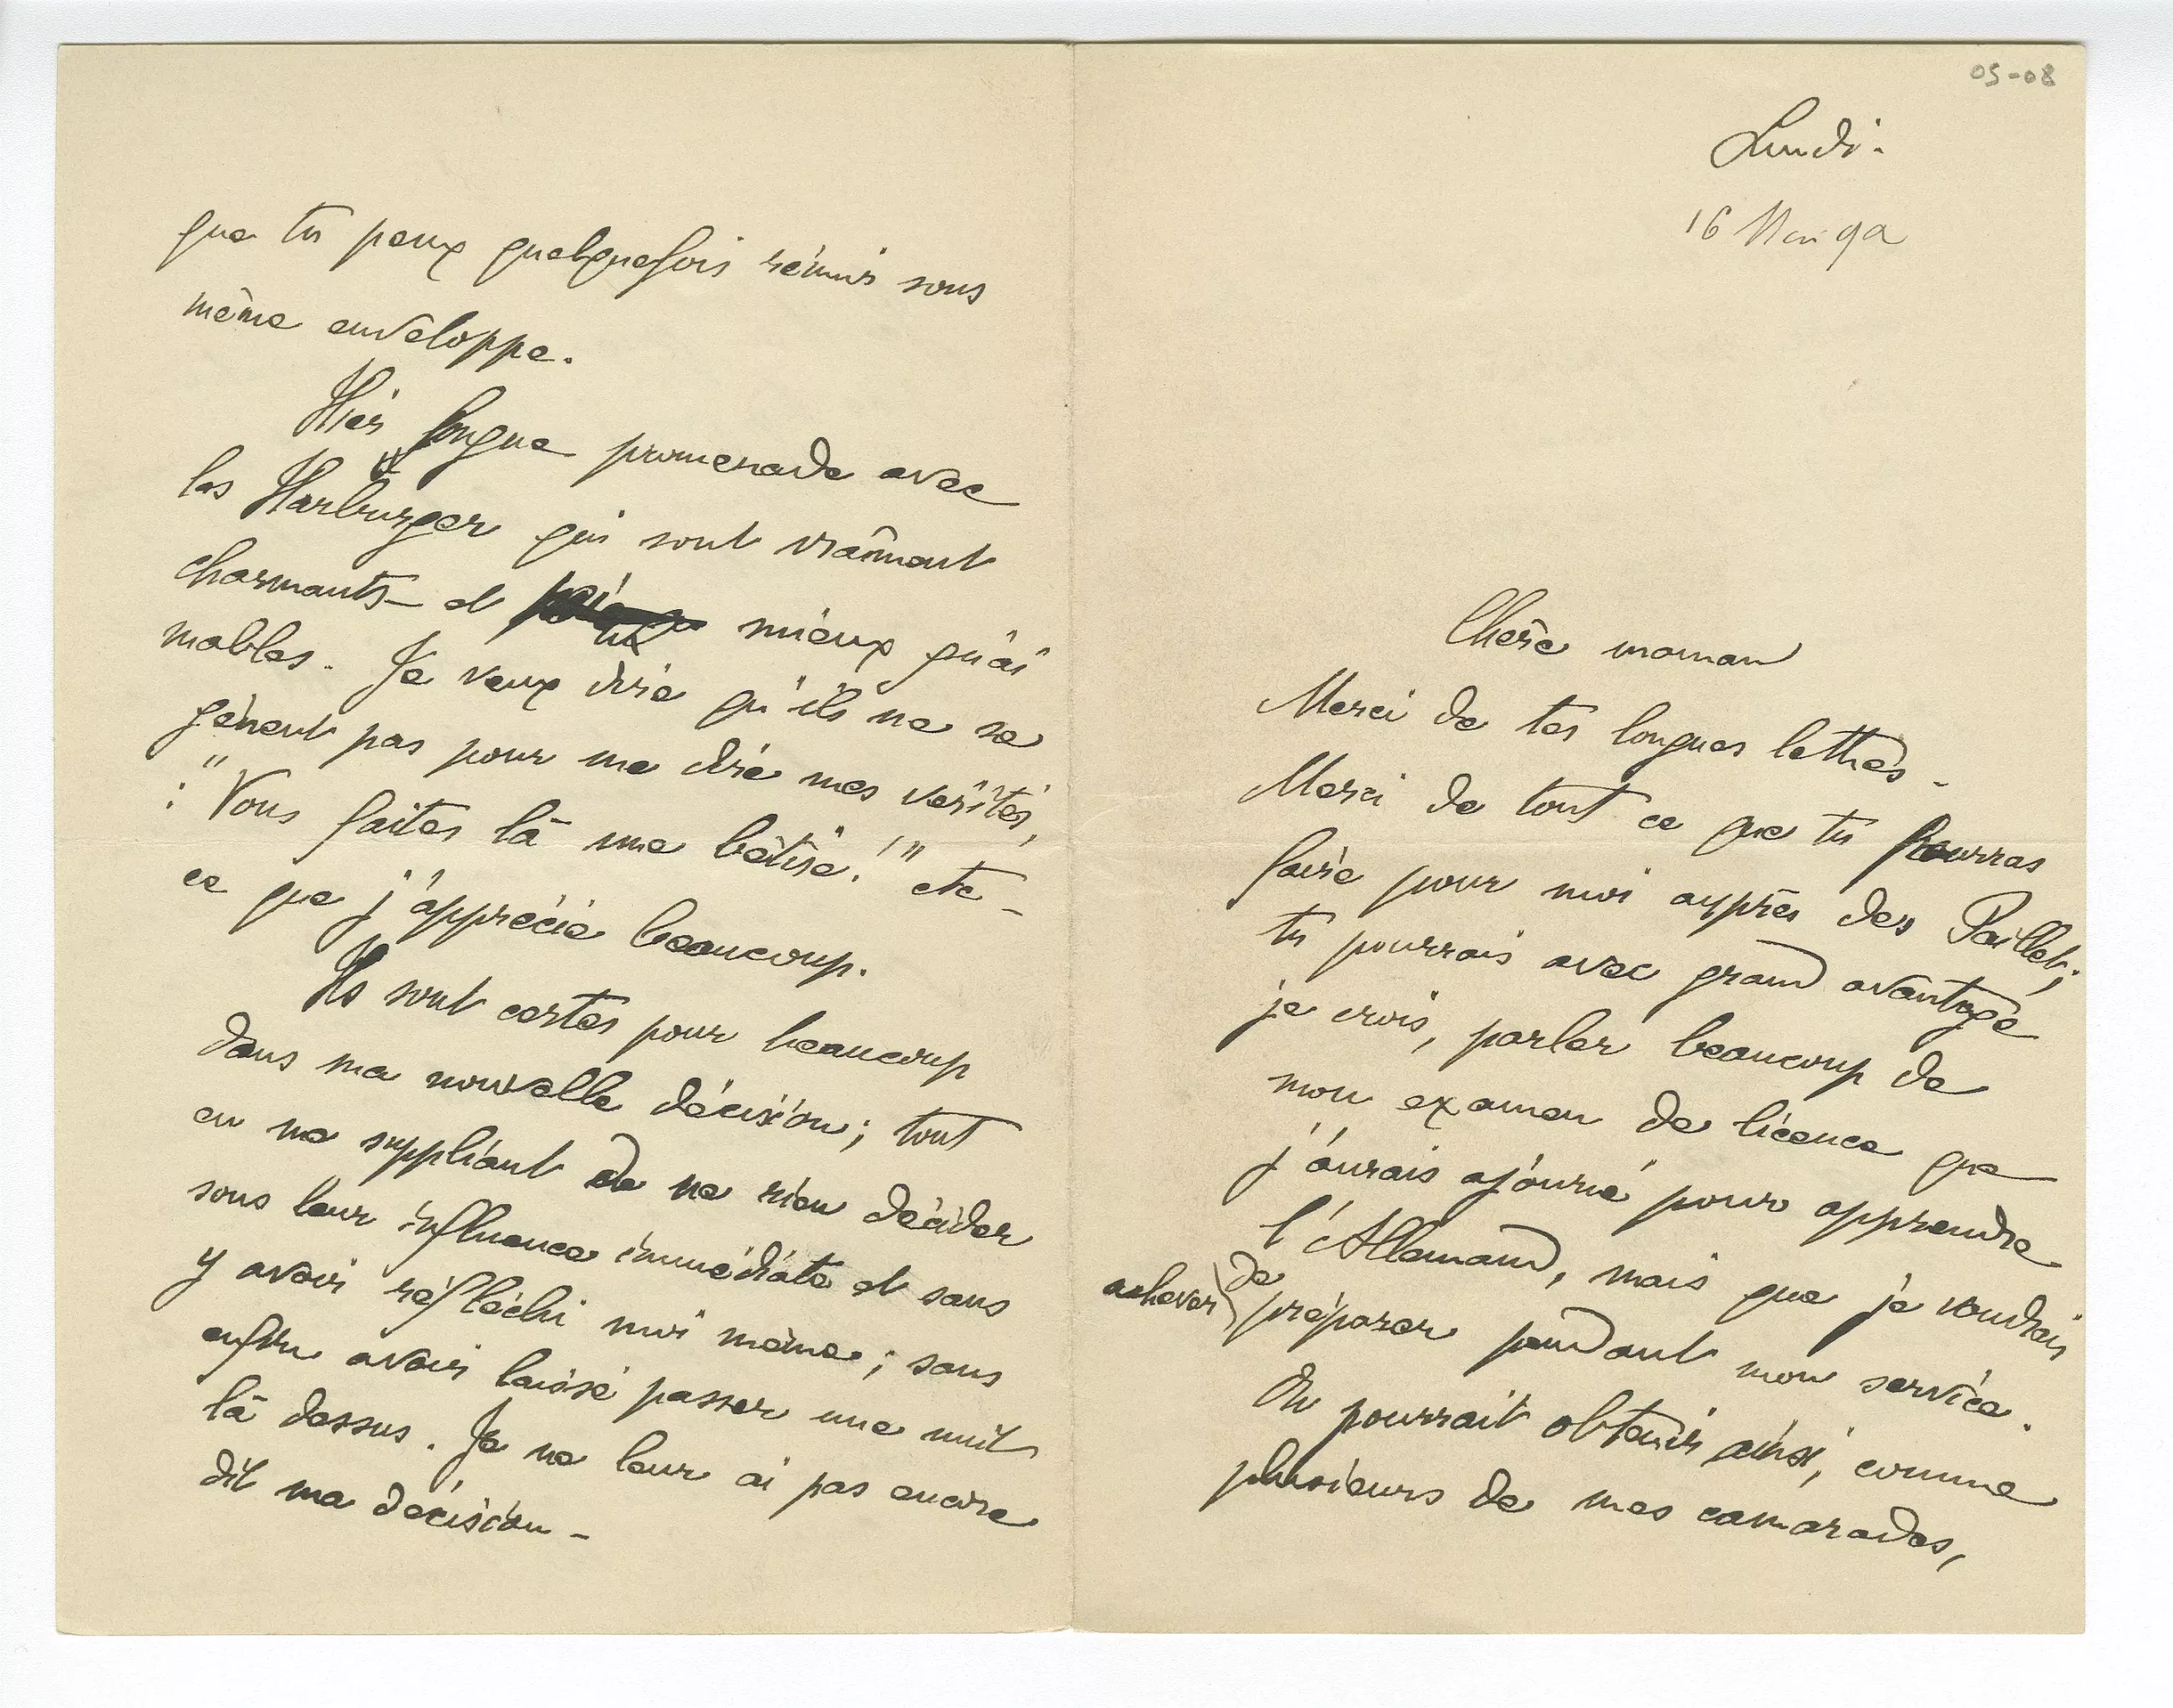 05-08
Lundi.
16 Mai 92
Chère maman
Merci de tes longues lettres -
Merci de tout ce que tu pourras
faire pour moi auprès des Paillet;
tu pourrais avec grand avantage
je crois, parler beaucoup de
mon examen de licence que
j'aurais ajourné pour apprendre
l'Allemand, mais que je voudrais
achever de
préparer pendant mon service.
On pourrait obtenir ainsi, comme
plusieurs de mes camarades,
que tu peux quelquefois réunir sous
même enveloppe.
Hier longue promenade avec
les Harburger qui sont vraîment
charmants - et mieux qu'ai
mables. Je veux dire qu'ils ne se
gènent pas pour me dire mes vérités,
: "Vous faites là une bêtise!" etc -
ce que j'apprécie beaucoup.
Ils sont certes pour beaucoup
dans ma nouvelle décision; tout
en me suppliant de ne rien décider
sous leur influence immédiate et sans
y avoir réfléchi moi même; sans
enfin avoir laissé passer une nuit
là dessus. Je ne leur ai pas encore
dit ma décision -